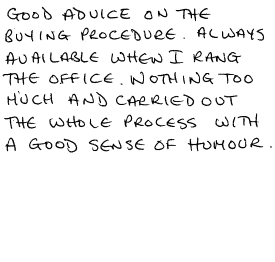 GOOD ADVICE ON THE
BUYING PROCEDURE. ALWAYS
AVAILABLE WHEN I RANG
THE OFFICE. NOTHING TOO
MUCH AND CARRIED OUT
THE WHOLE PROCESS WITH
A GOOD SENSE OF HUMOUR.